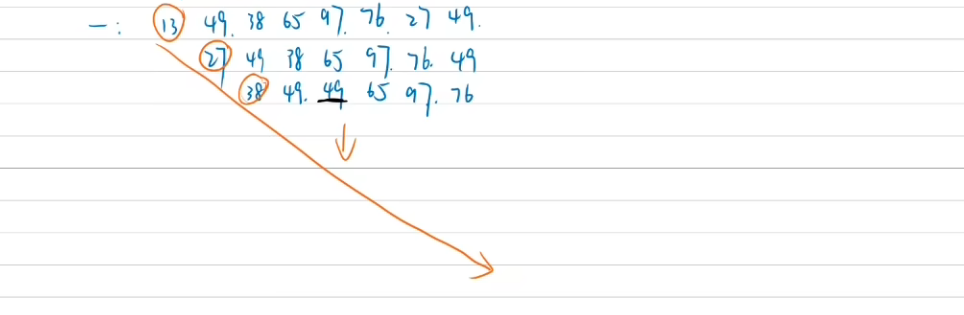 一: 13 49. 38 65 97. 76. 27 49.
27 49 38 65 97. 76. 49
38 49. 49 65 97. 76